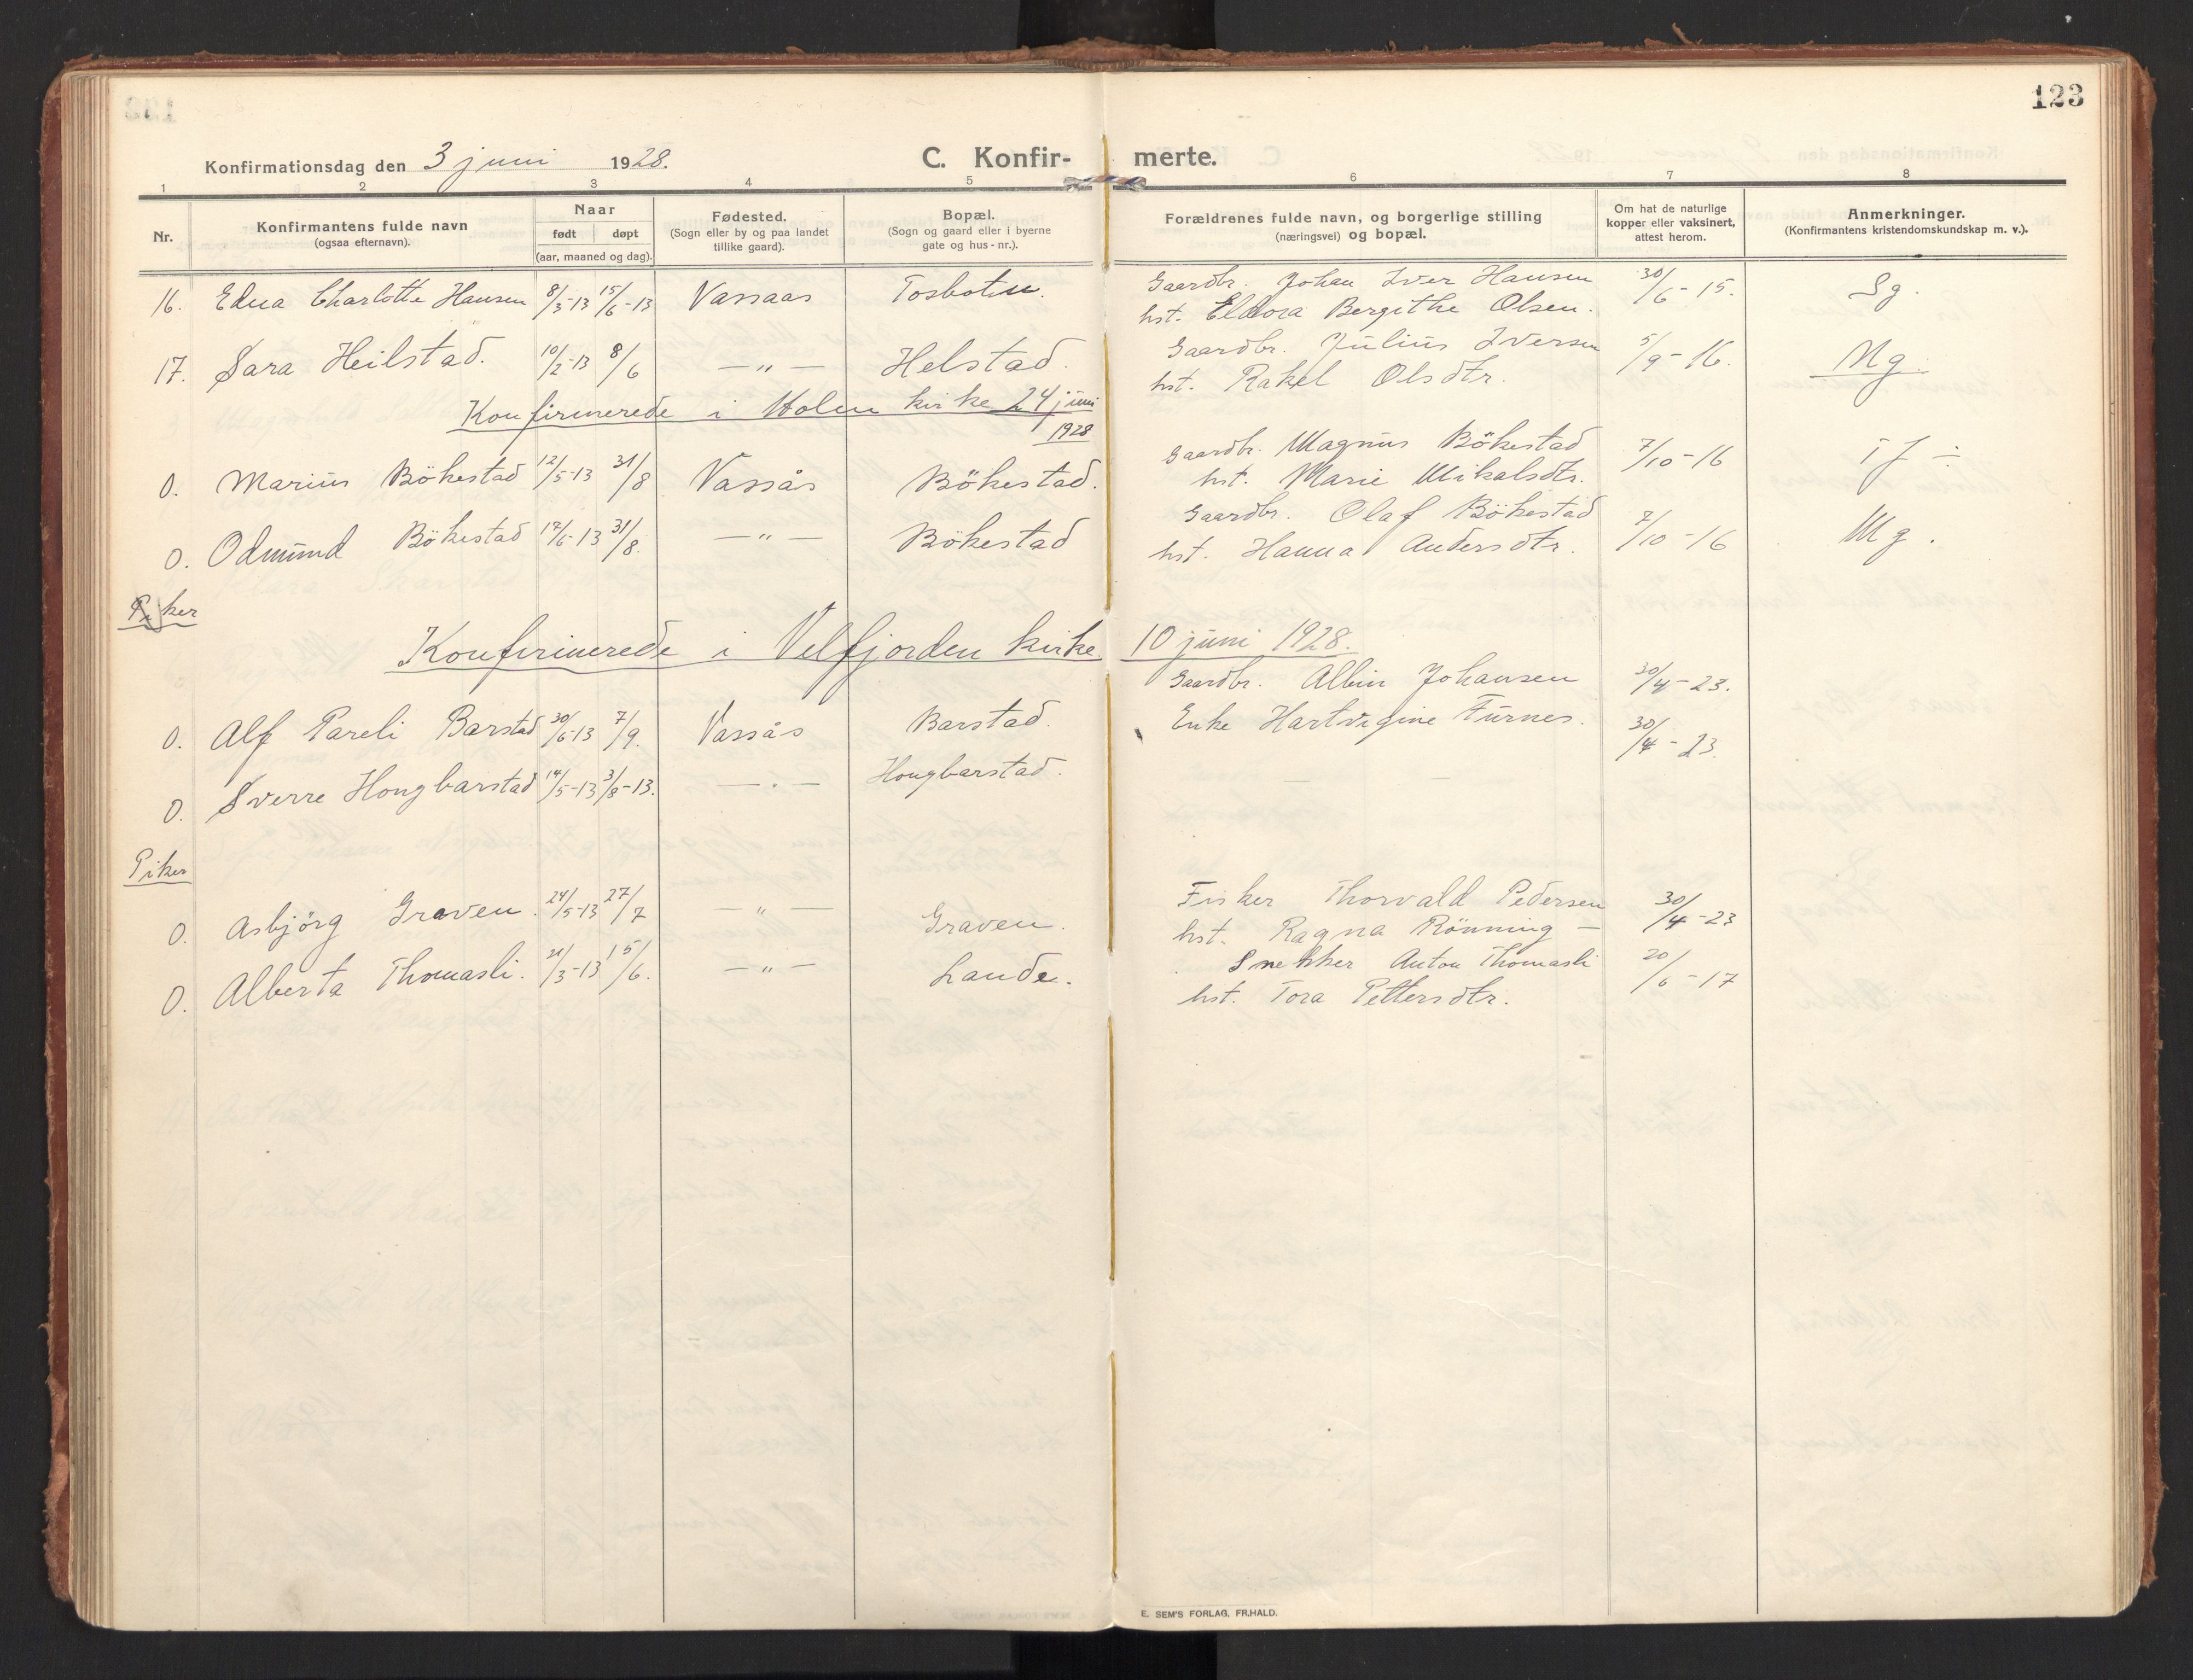 123
Konfirmationsdag den 3 juni 1928.
C. Konfir- merte.
1 2 3 4 5 6 7 8
Nr.
Konfirmantens fulde navn
(ogsaa efternavn).
Naar
født døpt
(aar, maaned og dag).
Fødested.
(Sogn eller by og paa landet
tillike gaard).
Bopæl.
(Sogn og gaard eller i byerne
gate og hus-nr.).
Forældrenes fulde navn, og borgerlige stilling
(næringsvei) og bopæl.
Om hat de naturlige
kopper eller vaksinert,
attest herom.
Anmerkninger.
(Konfirmantens kristendomskundskap m. v.).
16. Edna Charlotte Hansen 8/3-13 15/6-13 Vassaas Tosbotn. Gaardbr. Johan Iver Hansen 30/6-15. Sg.
hst. Eldora Bergithe Olsen.
17. Sara Heilstad. 10/2-13 8/6 —„— Helstad. Gaardbr. Julius Iversen 5/9-16. Mg.
hst. Rakel Olsdtr.
Konfirmerede i Holm kirke 24 juni
1928
O. Marius Bökestad 12/5-13 31/8 Vassås Bökestad. Gaardbr. Magnus Bökestad 7/10-16 Tf ÷
hst. Marie Mikalsdtr.
O. Odmund Bökestad 17/6-13 31/8. —„— Bökestad Gaardbr. Olaf Bökestad 7/10-16 Mg.
hst. Hanna Andersdtr.
Piker
Konfirmerede i Velfjorden kirke. 10 juni 1928.
O. Alf Pareli Barstad 30/6-13 7/9. Vassås Barstad. Gaardbr. Albin Johansen 30/4-23.
O. Sverre Hongbarstad 14/5-13 3/8-13. —„— Hongbarstad. Enke Hartvigine Furnes. 30/4-23.
Piker
O. Asbjörg Graven. 24/5-13 27/7 —„— Graven. Fisker Thorvald Pedersen 30/4-23
hst. Ragna Rönning —
O. Alberta Thomasli. 21/3-13 15/6. —„— Lande. Snekker Anton Thomasli 20/6-17
hst. Tora Pettersdtr.
E. SEM'S FORLAG, FR.HALD.